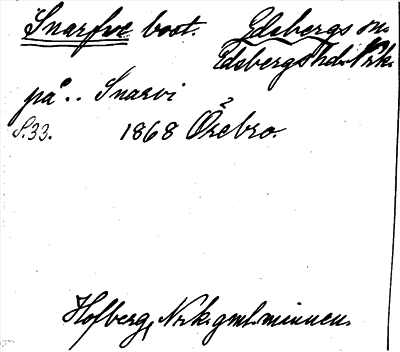 Snarfve bost. Edsbergs sn.
Edsbergs hd. Nrk.
på.. Snarvi
S.33. 1868 Örebro.
Hofberg, Nrk. gml. minnen.